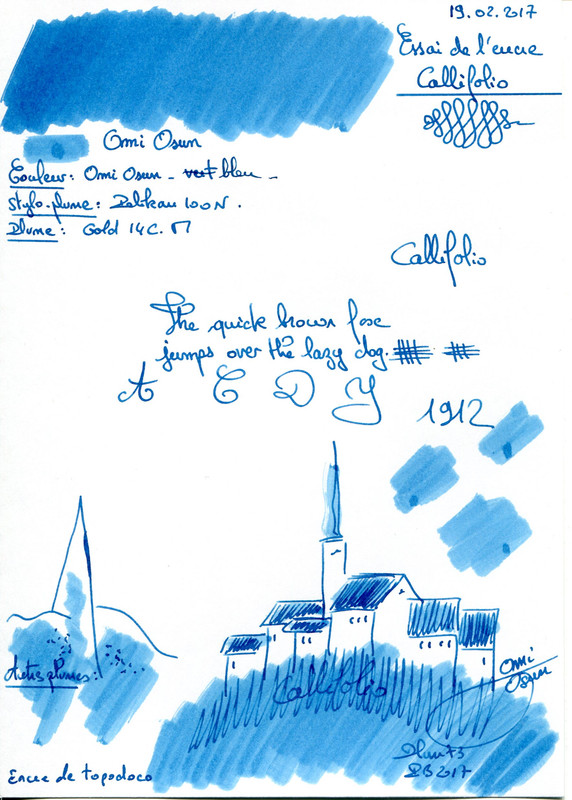 19.02.2017
Essai de l'encre
Callifolio
Omi Osun
Couleur: Omi Osun - vert bleu -
Stylo-plume: Pelikan 100N.
Plume: Gold 14C. M
Callifolio
The quick brown foxe
jumps over the lazy dog.
A C D Y
1912
Autres plumes:
Callifolio
Omi
Osun
Plum75
2017
Encre de topodoco